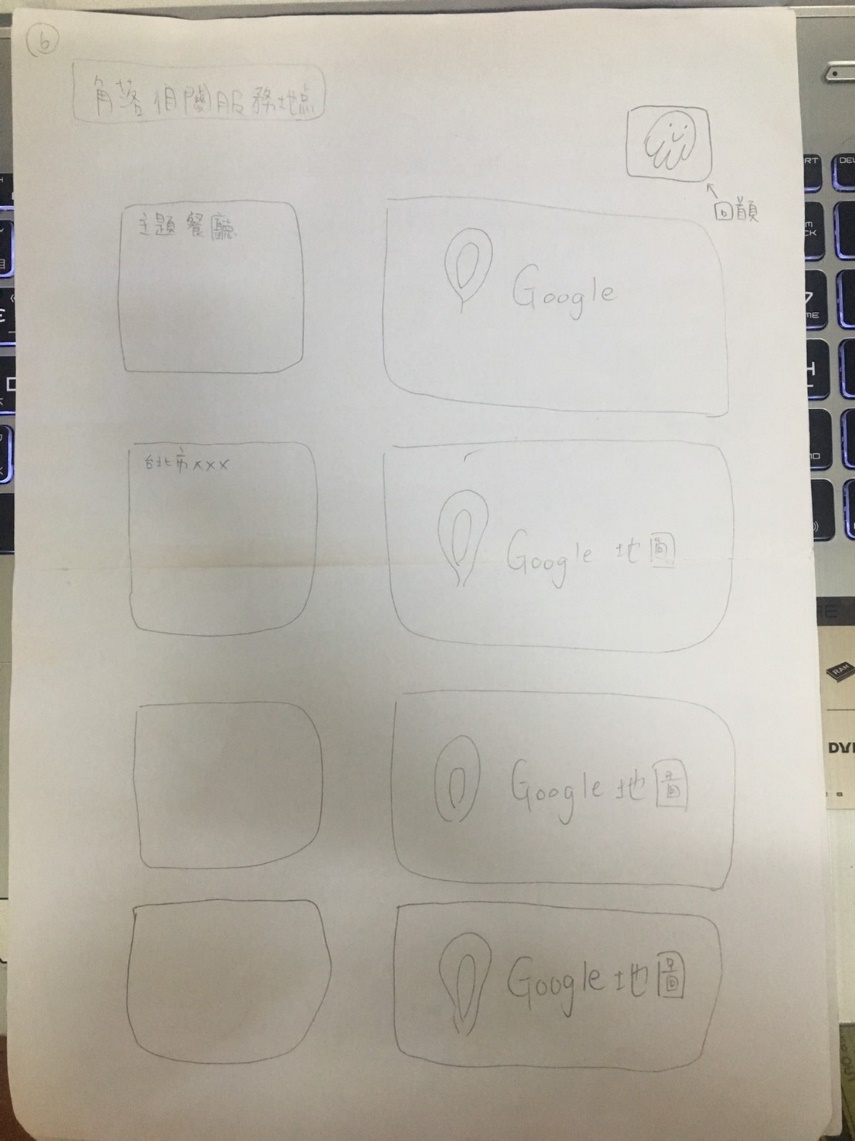 6
角落相關服務地點
回首頁
主題餐廳
Google
台北市xxx
Google 地圖
Google 地圖
Google 地圖
RAM